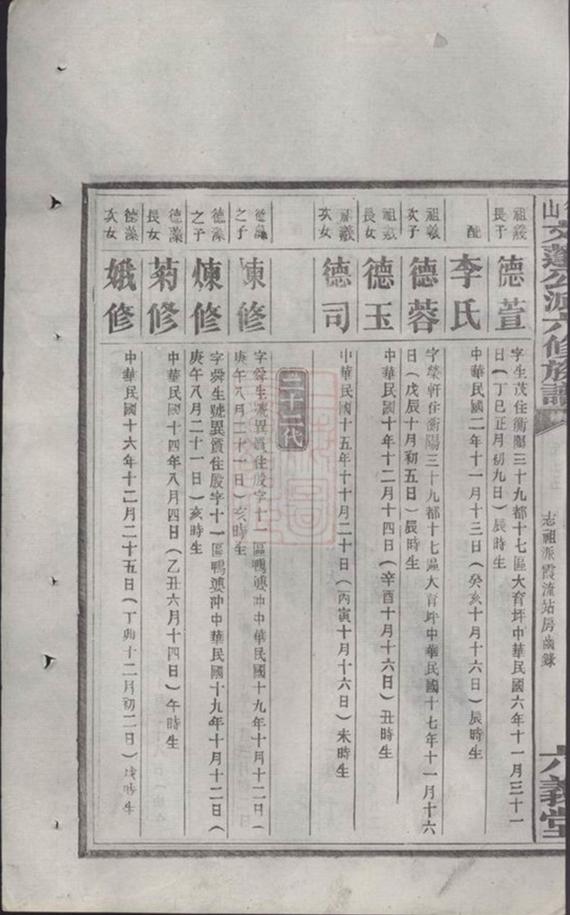 山文蓬公派六修族譜
志祖派霞流站房齒錄
六義堂
祖羲長子
德萱
字生茂住衡陽三十九都十七區大育坪中華民國六年十一月三十一
日(丁巳正月初九日)辰時生
配
李氏
中華民國二年十一月十三日(癸亥十月十六日)辰時生
祖羲次子
德蓉
字榮軒住衡陽三十九都十七區大育坪中華民國十七年十一月十六
日(戊辰十月初五日)辰時生
祖羲長女
德玉
中華民國十年十二月十四日(辛酉十月十六日)丑時生
祖羲次女
德司
中華民國十五年十十月二十日(丙寅十月十六日)未時生
二十一代
德藻之子
字舜生號異質住股字十一區鴨婆沖中華民國十九年十月十二日(
庚午八月二十一日)亥時生
德藻之子
煉修
字舜生號異質住股字十一區鴨婆沖中華民國十九年十月十二日(
庚午八月二十一日)亥時生
德藻長女
菊修
中華民國十四年八月四日(乙丑六月十四日)午時生
德藻次女
娥修
中華民國十六年十二月二十五日(丁卯十二月初二日)戌時生